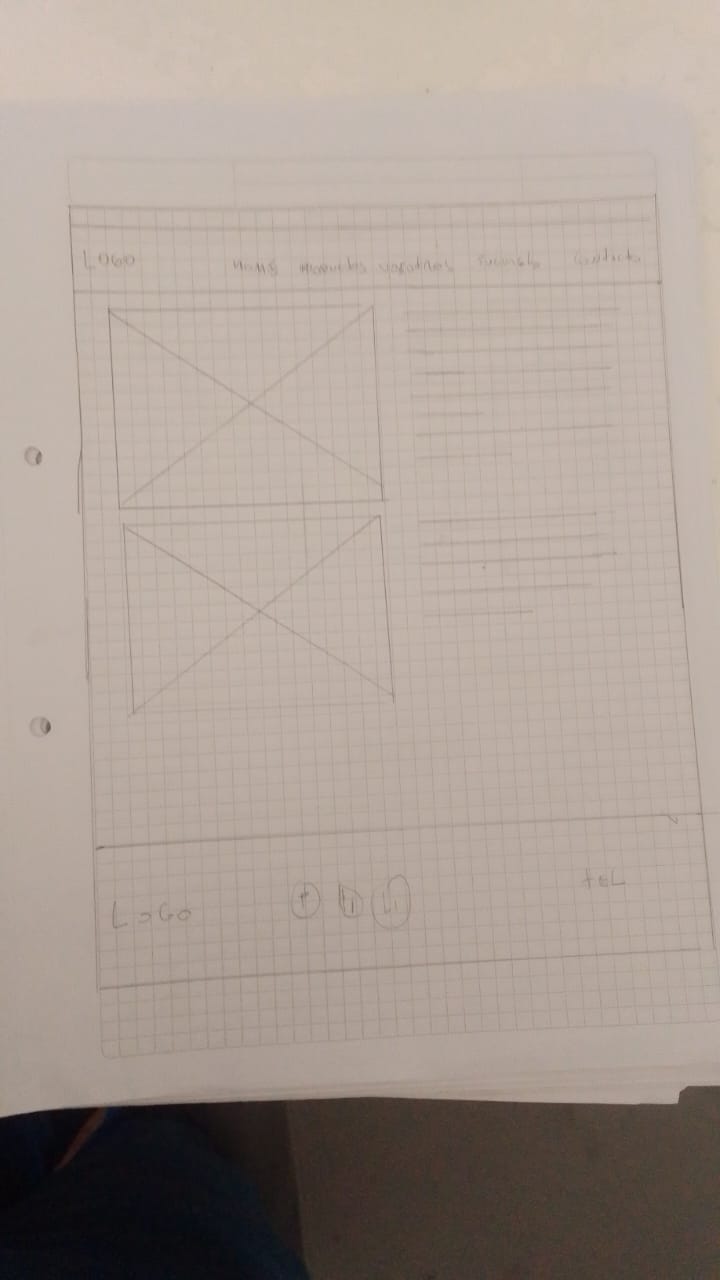 LOGO Home Productos nosotros Sucursal Contacto
tEL
LOGO